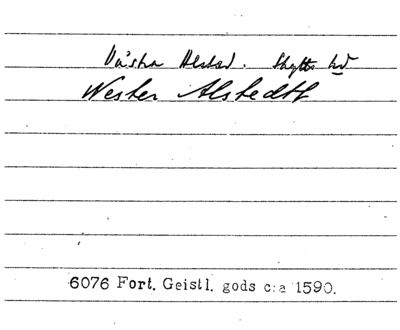 Västra Alstad. Skytts hd
Wester Alstedtt
6076 Fort. Geistl. gods c:a 1590.